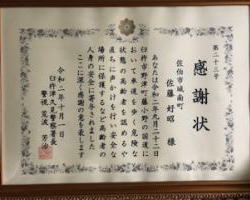 第二十二号
感謝状
佐伯市城南町
佐藤好昭 様
あなたは令和二年九月二十二日
臼杵市野津町藤小野の国道に
おいて車道を歩く危険な
状態の高齢者を認めるや
直ちに声かけを行い安全な
場所に保護するなど高齢者の
人身の安全に寄与されました
ここに深く感謝の意を表します
令和二年十月一日
臼杵津久見警察署長
警視 荒波 芳治